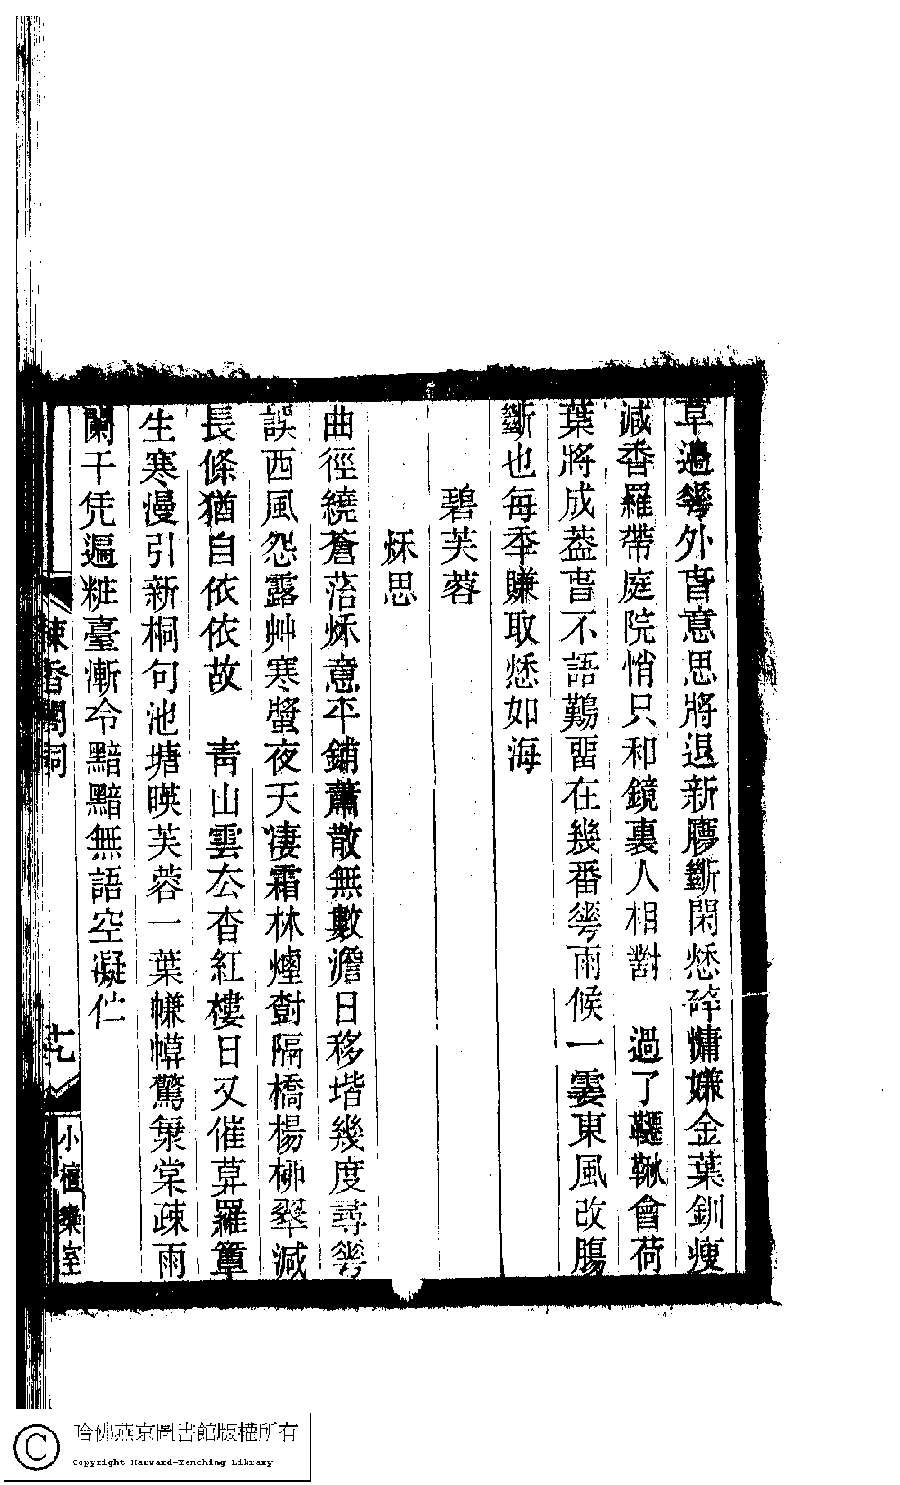 草過等外旾意思將退新膠斷閑愁碎慵嫌金葉釧瘦
減香羅帶庭院悄只和鏡裏人相對　過了韆鞦會荷
葉將成葢旾不語鷄畱在幾番等雨候一霎東風改腸
斷也每秊賺取愁如海
碧芙蓉
秌思
曲徑繞蒼萿秌意平鋪蕭散無數澹日移堦幾度尋等
誤西風怨露艸寒螿夜天淒霜林煙尌隔橋楊柳翠減
長條猶自依依故　靑山雲厺杳紅樓日又催莫羅簟
生寒漫引新桐句池塘暎芙蓉一葉㡘幙驚棃棠疎雨
闌干凭遍粧臺漸令黯黯無語空凝伫
疎香閣詞
十七
小檀欒室
哈佛燕京圖書館版權所有
Copyright Harvard-Yenching Library